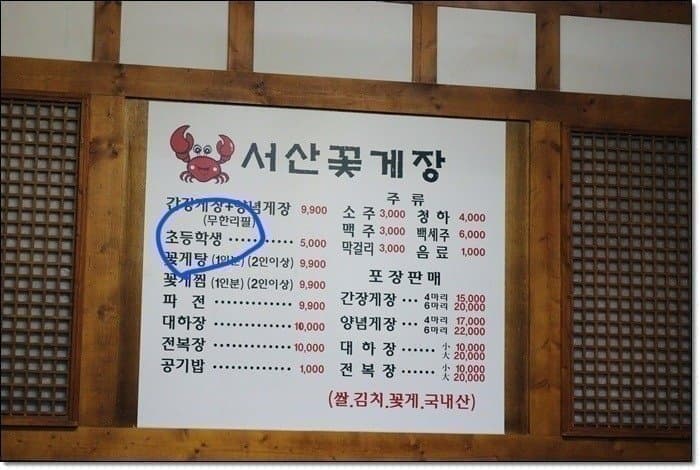 서산꽃게장
간장게장+양념게장 9,900
(무한리필)
초등학생 ············ 5,000
꽃게탕 (1인분) (2인이상) 9,900
꽃게찜 (1인분) (2인이상) 9,900
파 전 ·············· 9,900
대하장 ·············· 10,000
전복장 ·············· 10,000
공기밥 ·············· 1,000
주 류
소 주 3,000 청 하 4,000
맥 주 3,000 백세주 6,000
막걸리 3,000 음 료 1,000
포장판매
간장게장 ··· 4마리 15,000
6마리 20,000
양념게장 ··· 4마리 17,000
6마리 22,000
대 하 장 ······ 小 10,000
大 20,000
전 복 장 ······ 小 10,000
大 20,000
(쌀.김치.꽃게.국내산)